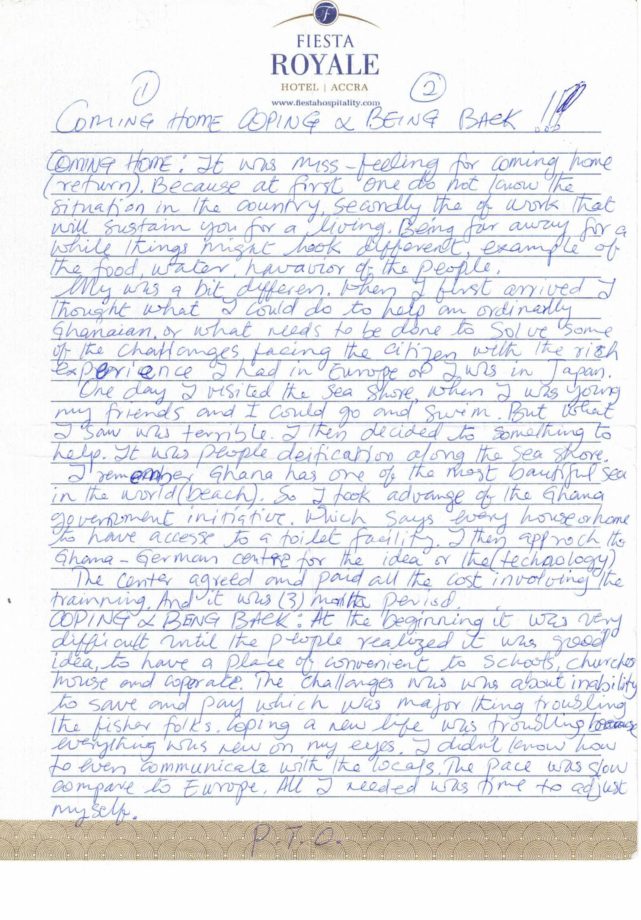 F
FIESTA
ROYALE
HOTEL | ACCRA
www.fiestahospitality.com
1 2
COMING HOME COPING & BEING BACK !!!
COMING HOME: It was miss-feeling for coming home
(return). Because at first one do not know the
situation in the country, secondly the of work that
will sustain you for a living. Being far away for a
while things might look different, example of
the food, water, havavior of the people.
My was a bit differen. When I first arrived I
thought what I could do to help an ordinarily
Ghanaian, or what needs to be done to solve some
of the challanges facing the citizen with the rich
experience I had in Europe or I was in Japan.
One day I visited the sea shore, when I was young
my friends and I could go and swim. But what
I saw was terrible. I then decided to something to
help. It was people deification along the sea shore.
I remember Ghana has one of the most bautiful sea
in the world (beach). So I took advange of the Ghana
government initiative. Which says every house or home
to have accesse to a toilet facility. I then approch the
Ghana-German centre for the idea or the (technology)
The center agreed and paid all the cost involving the
trainning. And it was (3) months period
COPING & BENG BACK: At the beginning it was very
difficult until the people realized it was good
idea, to have a place of convenient to schools, churches
house and coperate. The challanges was was about inability
to save and pay which was major thing troubling
the fisher folks. Coping a new life was troubling because
everything was new on my eyes. I didn't know how
to even communicate with the locals. The pace was slow
compare to Europe. All I needed was time to adjust
myself.
P.T.O.